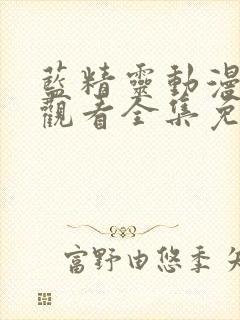 藍精靈動漫
觀看全集免
富野由悠季